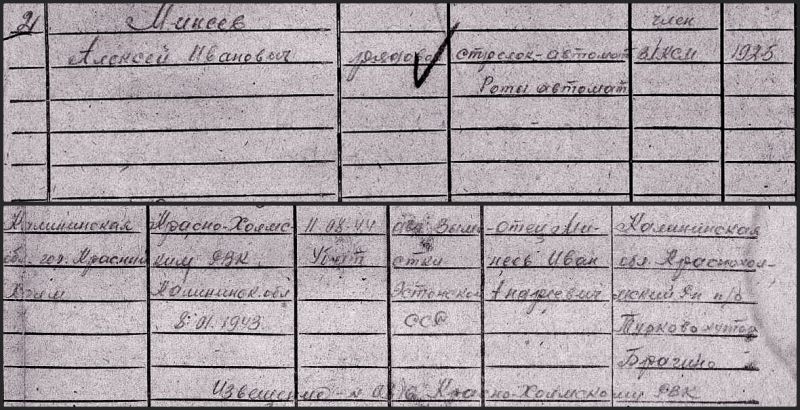 21 Минеев член
Алексей Иванович рядовой стрелок-автомат ВЛКСМ 1925
Роты автомат
Калининская Красно-Холмс- 11.08.44 -отец Ми- Калининская
обл. гор. Красный ким РВК Убит неев Иван обл. Краснохол-
Холм Калининск. обл Эстонской Андреевич мский р-н п/о
8.01.1943 ССР Турково хутор
Брагино
Извещение Красно-Холмскому РВК